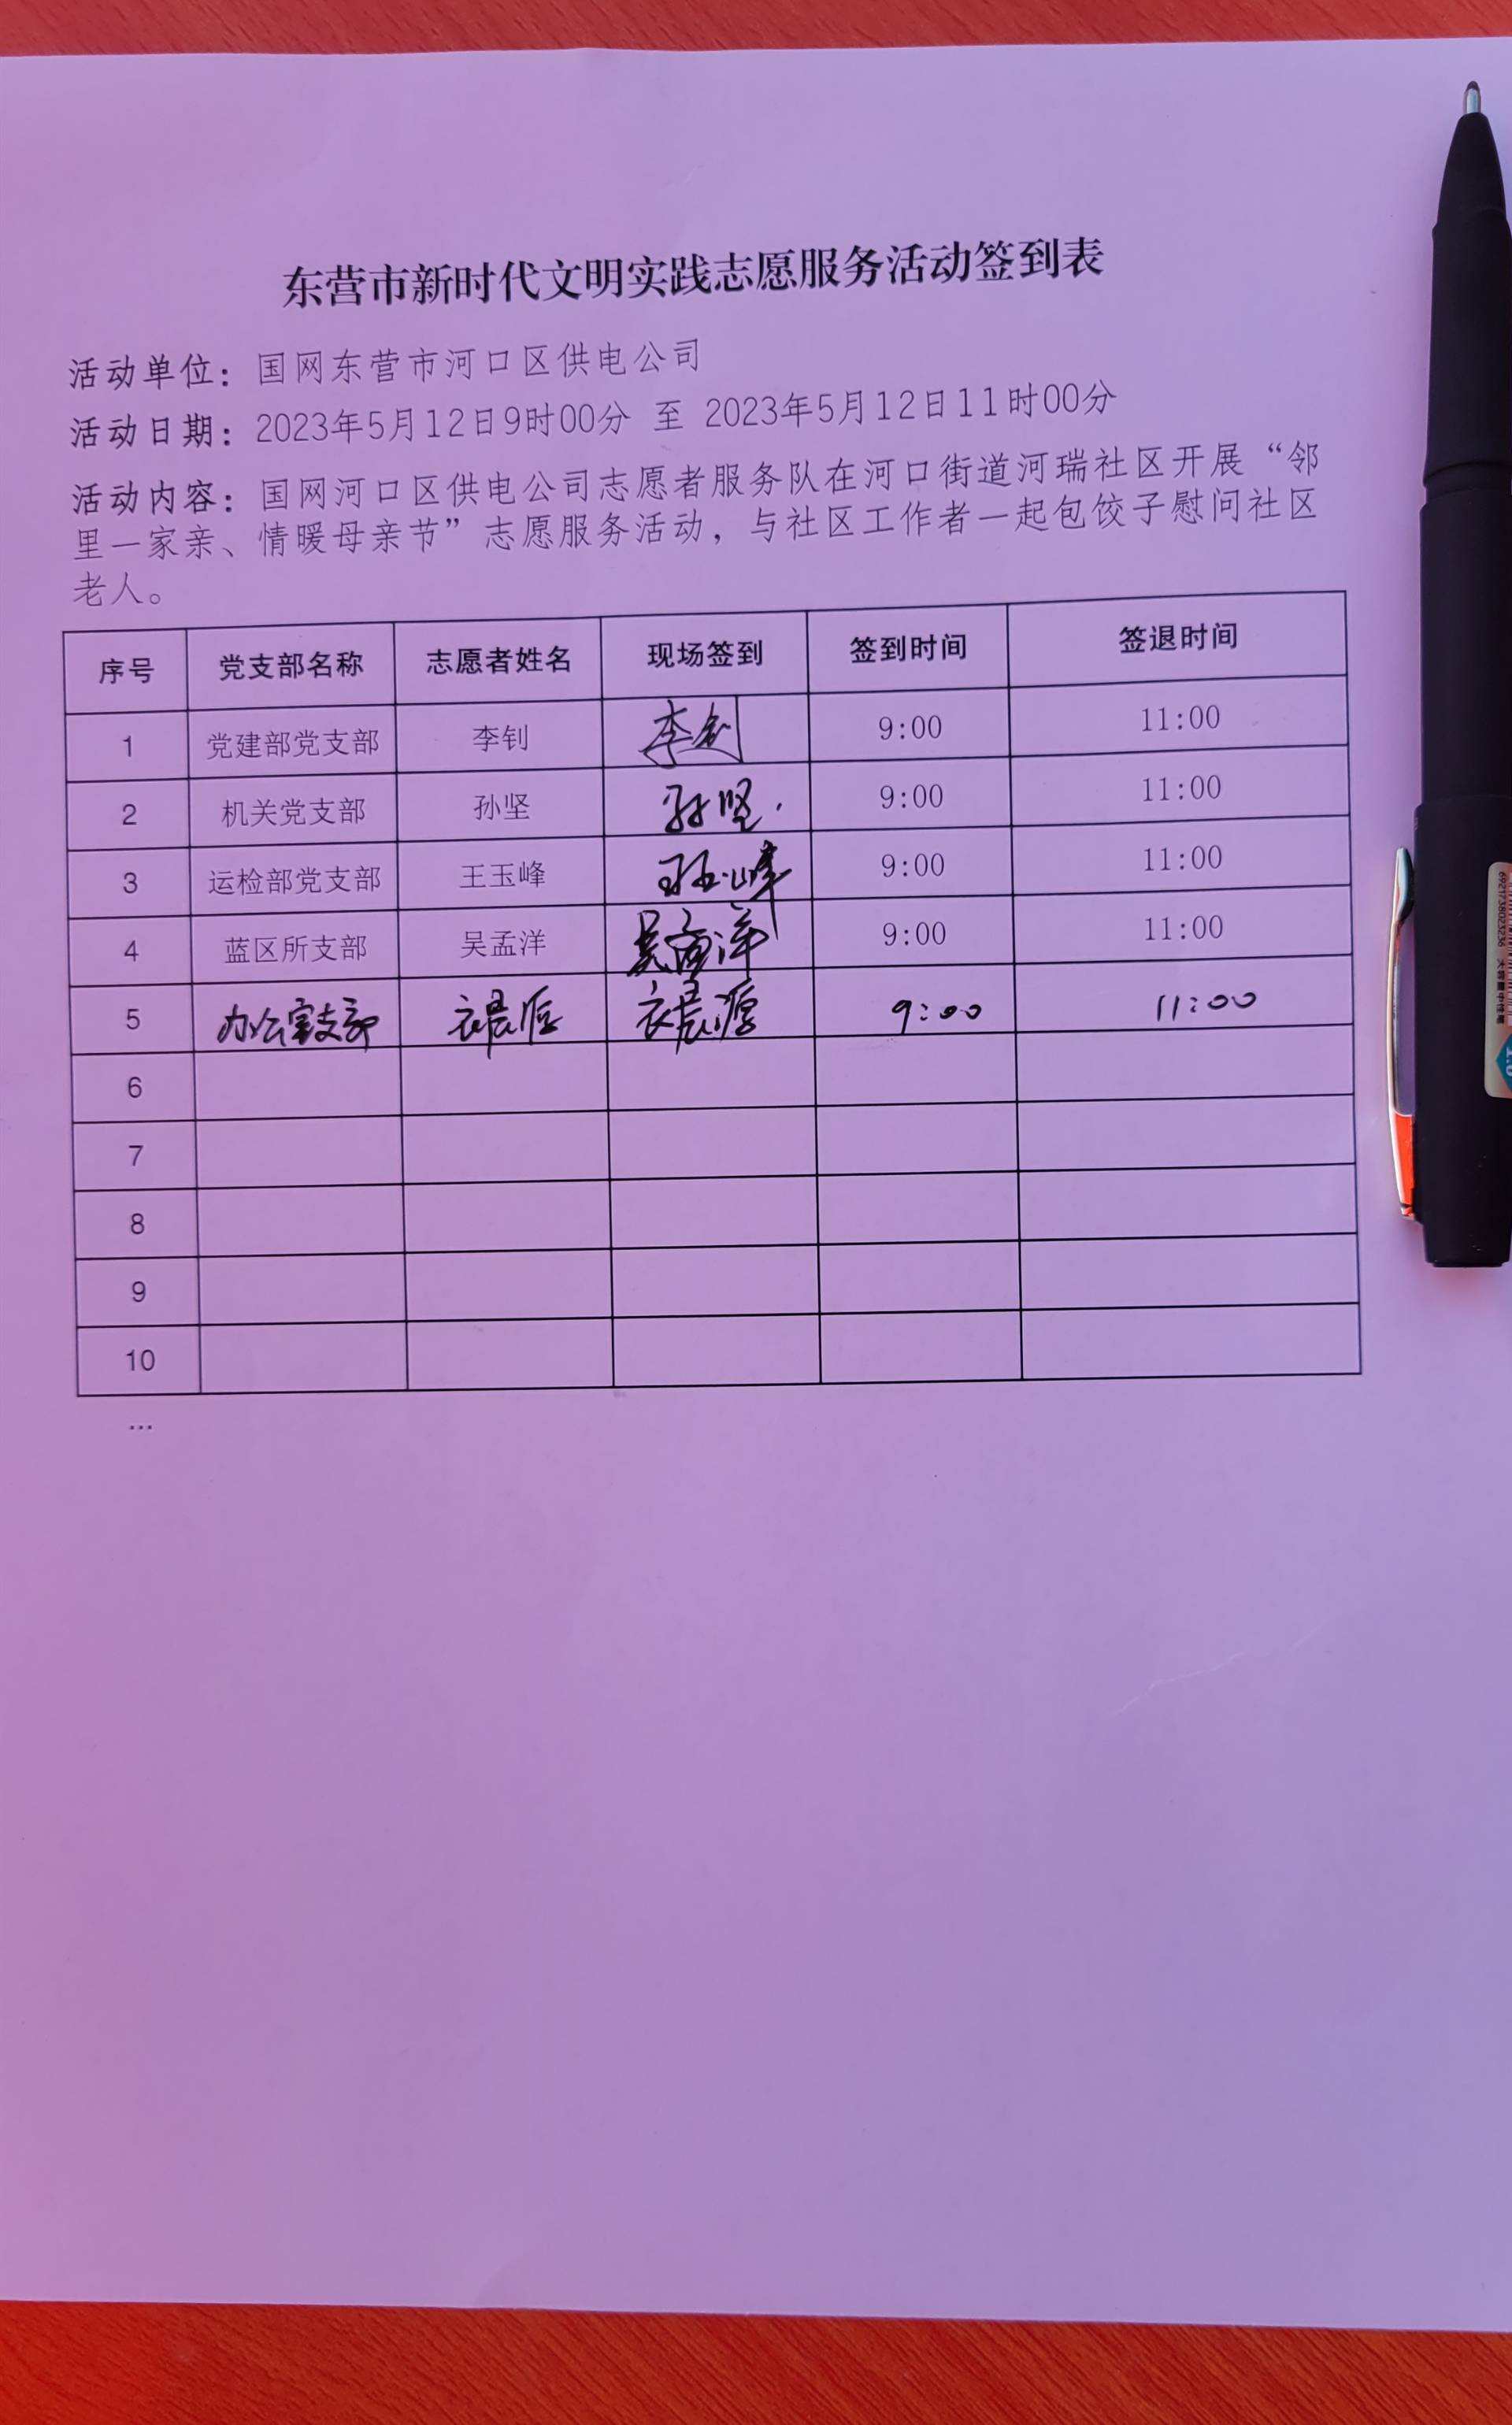 东营市新时代文明实践志愿服务活动签到表
活动单位：国网东营市河口区供电公司
活动日期：2023年5月12日9时00分 至 2023年5月12日11时00分
活动内容：国网河口区供电公司志愿者服务队在河口街道河瑞社区开展“邻
里一家亲、情暖母亲节”志愿服务活动，与社区工作者一起包饺子慰问社区
老人。
序号 党支部名称 志愿者姓名 现场签到 签到时间 签退时间
1 党建部党支部 李钊 李钊 9:00 11:00
2 机关党支部 孙坚 孙坚 9:00 11:00
3 运检部党支部 王玉峰 王玉峰 9:00 11:00
4 蓝区所支部 吴孟洋 吴孟洋 9:00 11:00
5 办公室支部 衣晨源 衣晨源 9:00 11:00
6
7
8
9
10
...